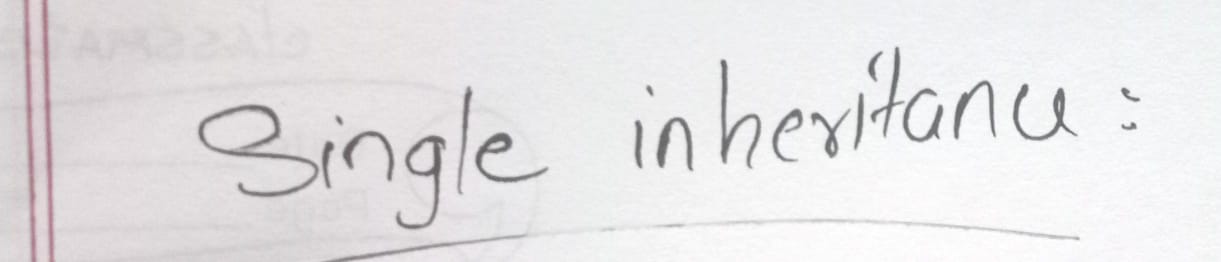 Single inheritance :